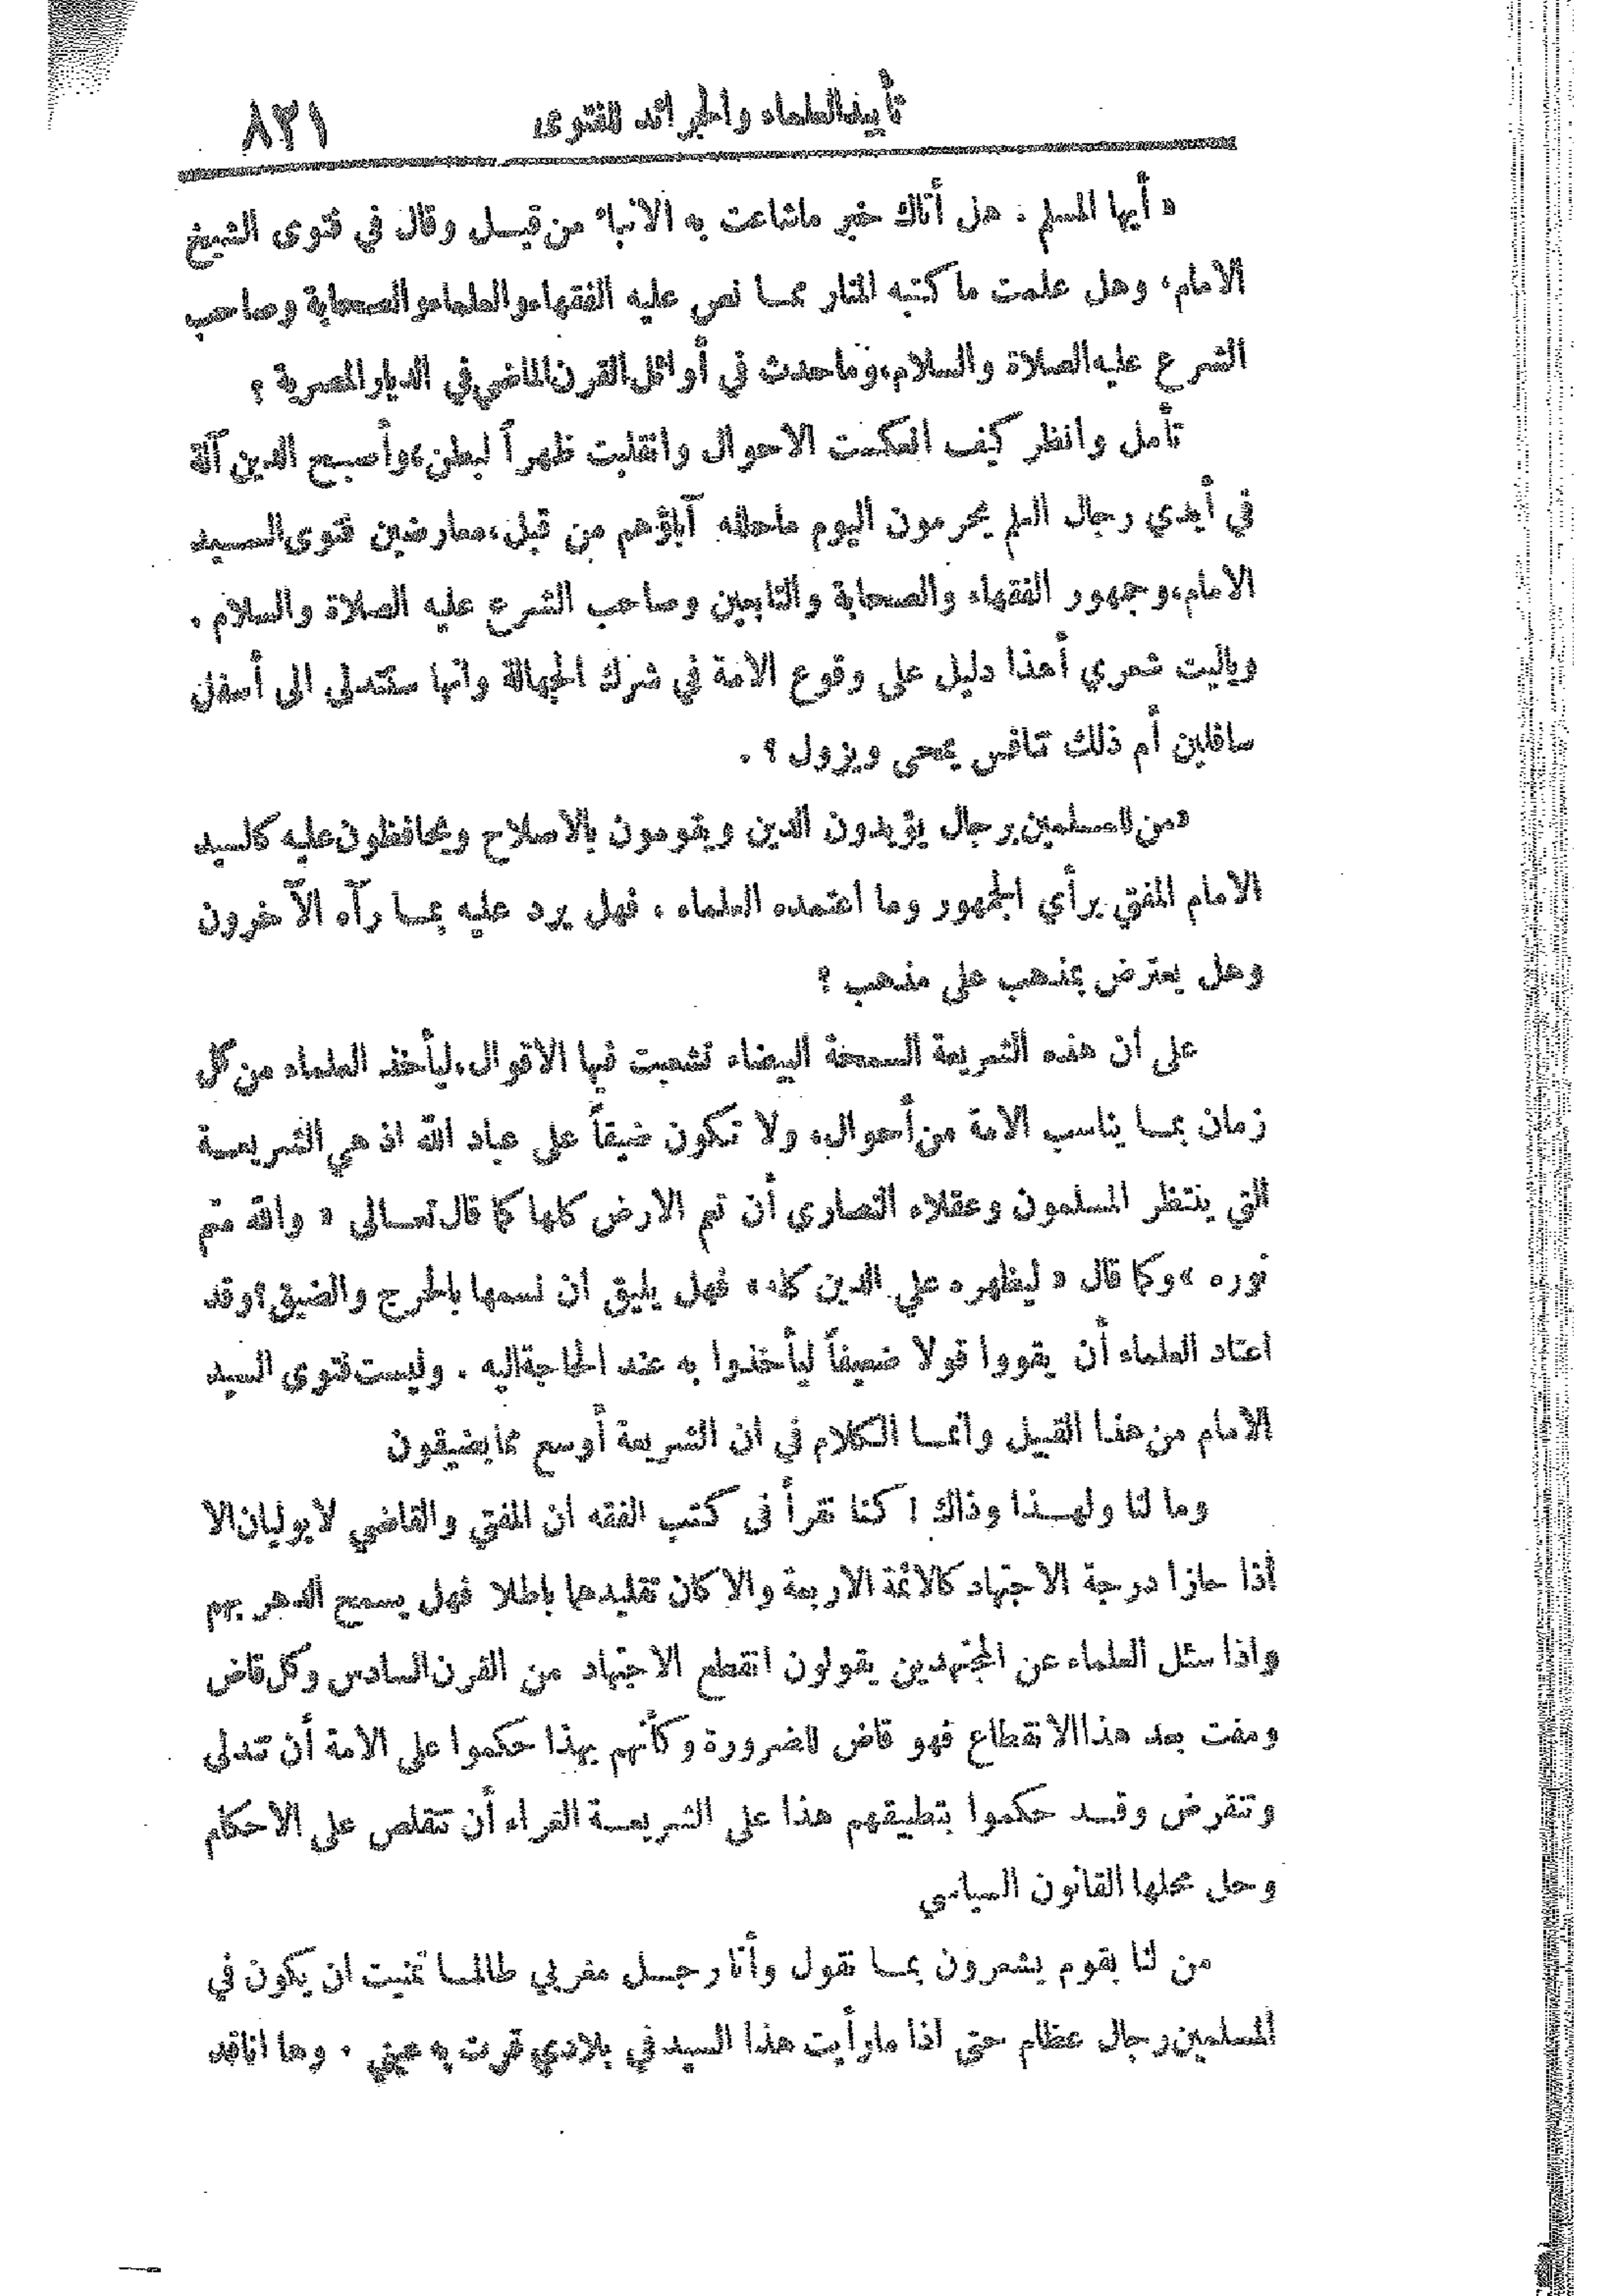 تأييد العلماء والجرائد للفتوى ٨٣١
« أيها المسلم : هل أتاك خبر ماشاعت به الانباء من قيــل وقال في فتوى الشيخ
الامام، وهل علمت ما كتبه المنار ممـا نص عليه الفقهاء والعلماء والصحابة وصاحب
الشرع عليه الصلاة والسلام، وماحدث في أوائل القرن الماضي في الديار المصرية ؟
تأمل وانظر كيف انعكست الاحوال وانقلبت ظهراً لبطن، وأصبح الدين آلة
في أيدي رجال العلم يحرمون اليوم ماحلله آباؤهم من قبل، معارضين فتوى السيد
الامام، وجمهور الفقهاء والصحابة والتابعين وصاحب الشرع عليه الصلاة والسلام .
وياليت شعري أهذا دليل على وقوع الامة في شرك الجهالة وانها ستتدلى الى أسفل
سافلين أم ذلك تنافس يمحى ويزول ؟ .
ومن المسلمين رجال يؤيدون الدين ويقومون بالاصلاح ويحافظون عليه كالسيد
الامام المفتي برأي الجمهور وما اعتمده العلماء ، فهل يرد عليه بمـا رآه الآخرون
وهل يعترض بمذهب على مذهب ؟
على ان هذه الشريعة السمحة البيضاء تشعبت فيها الاقوال، ليأخذ العلماء من كل
زمان بمـا يناسب الامة من أحوال، ولا تكون ضيقاً على عباد الله اذ هي الشريعـة
التي ينتظر المسلمون وعقلاء النصارى أن تعم الارض كلها كما قال تعـالى « والله متم
نوره » وكما قال « ليظهره على الدين كله » فهل يليق ان نسمها بالحرج والضيق؟ وقد
اعتاد العلماء أن يقووا قولا ضعيفاً ليأخذوا به عند الحاجة اليه . وليست فتوى السيد
الامام من هذا القبيل وانمـا الكلام في ان الشريعة أوسع مما يضيقون
وما لنا ولهـذا وذاك ! كنا نقرأ في كتب الفقه ان المفتي والقاضي لا يوليان الا
إذا حازا درجة الاجتهاد كالائمة الاربعة والا كان تقليدهما باطلا فهل يسمح الدهر بهم
واذا سئل العلماء عن المجتهدين يقولون انقطع الاجتهاد من القرن السادس وكل قاض
ومفت بعد هذا الانقطاع فهو قاض للضرورة وكأنهم بهذا حكموا على الامة أن تتدلى
وتنقرض وقـد حكموا بتطبيقهم هذا على الشريعـة الغراء أن تتقلص على الاحكام
وحل محلها القانون السياسي
من لنا بقوم يشعرون بمـا نقول وأنا رجـل مغربي طالمـا تمنيت ان يكون في
المسلمين رجال عظام حتى اذا مارأيت هذا السيد في بلادي قرت به عيني . وها انا قد